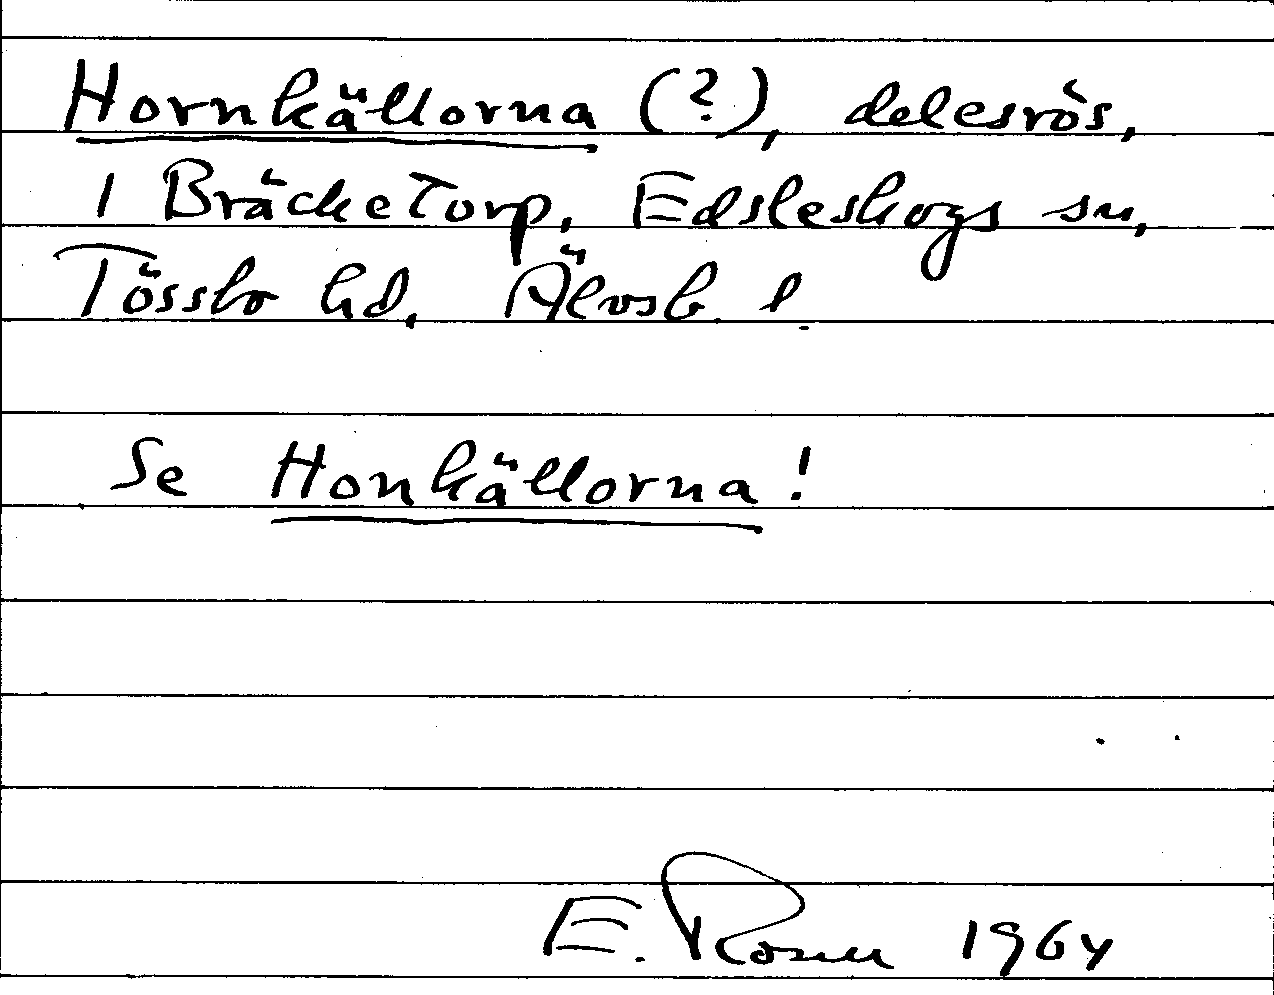 Hornkällorna (?), delesrös,
1 Bräcketorp, Edsleskogs sn,
Tössbo hd, Älvsb. l.
Se Honkällorna!
E. Rosen 1964